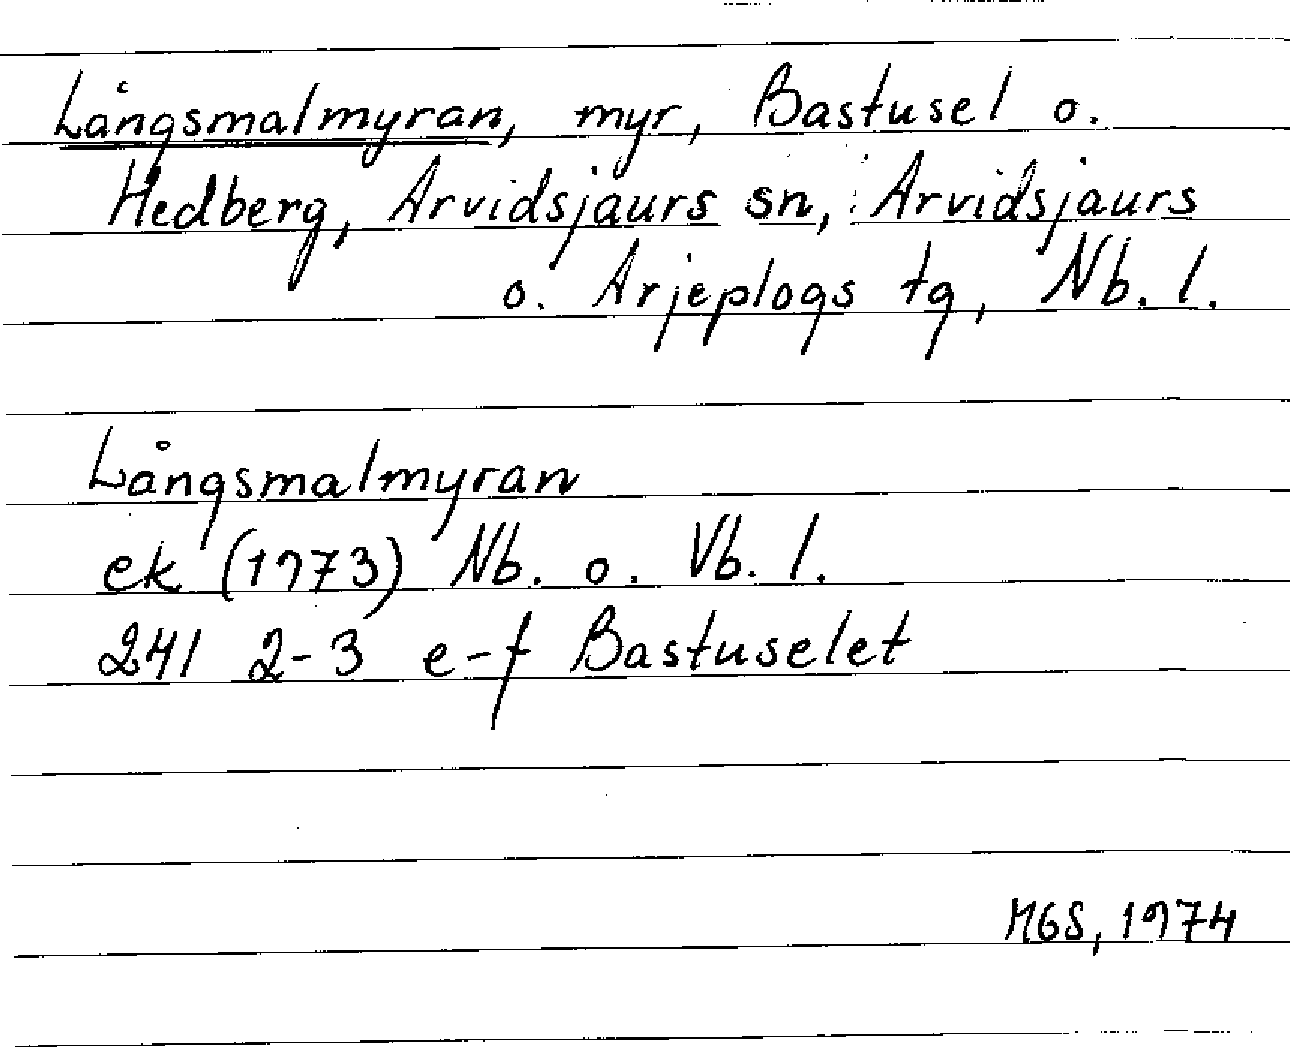 Långsmalmyran, myr, Bastusel o.
Hedberg, Arvidsjaurs sn, Arvidsjaurs
o. Arjeplogs tg, Nb. l.
Långsmalmyran
ek (1973) Nb. o. Vb. l.
241 2-3 e-f Bastuselet
MGS, 1974